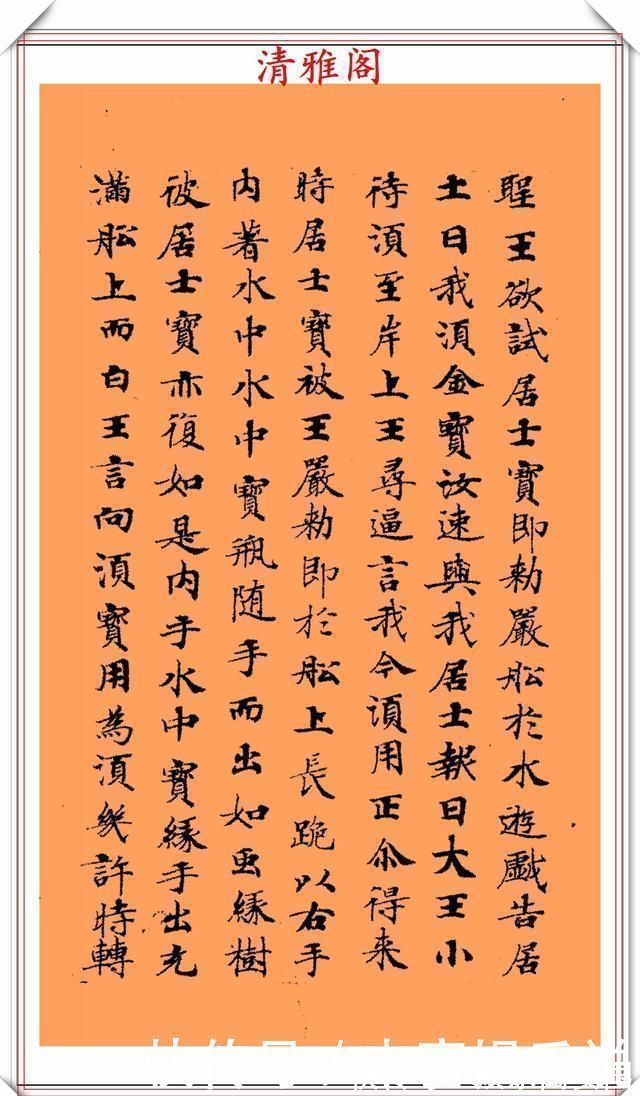 清雅阁
聖王欲試居士寶即勅嚴舩於水遊戲告居
士曰我須金寶汝速與我居士報曰大王小
待須至岸上王尋逼言我今須用正尒得来
時居士寶被王嚴勅即於舩上長跪以右手
内著水中水中寶瓶随手而出如虫緣樹
彼居士寶亦復如是内手水中寶緣手出充
滿舩上而白王言向須寶用為須幾許時轉
快传号 /